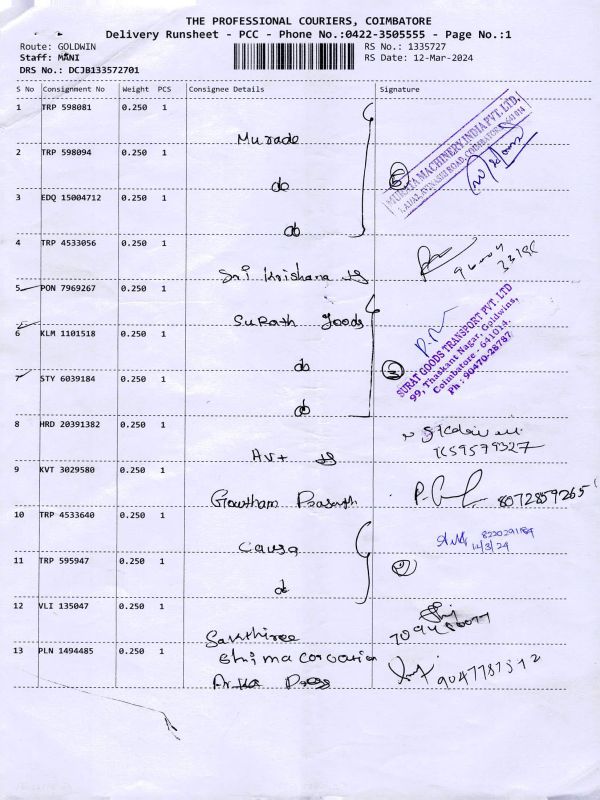 THE PROFESSIONAL COURIERS, COIMBATORE
Delivery Runsheet - PCC - Phone No.:0422-3505555 - Page No.:1
Route: GOLDWIN RS No.: 1335727
Staff: MANI RS Date: 12-Mar-2024
DRS No.: DCJB133572701
S No Consignment No Weight PCS Consignee Details Signature
1 TRP 598081 0.250 1
Murade
2 TRP 598094 0.250 1
do
MURATA MACHINERY INDIA PVT. LTD.
AVINASHI ROAD, COIMBATORE-641 014
3 EDQ 15004712 0.250 1
do
4 TRP 4533056 0.250 1
Sri Krishana
5 PON 7969267 0.250 1
Surath goods
6 KLM 1101518 0.250 1
do
SURAT GOODS TRANSPORT PVT. LTD
99, Thaskant Nagar, Goldwins,
Coimbatore - 641014.
Ph : 90470-28787
7 STY 6039184 0.250 1
do
3
8 HRD 20391382 0.250 1
9 KVT 3029580 0.250 1
Gowtham 8072859265
10 TRP 4533640 0.250 1
Causa
8220291184
12/3/24
11 TRP 595947 0.250 1
do
2
12 VLI 135047 0.250 1
Sakthiree
13 PLN 1494485 0.250 1
9047787512